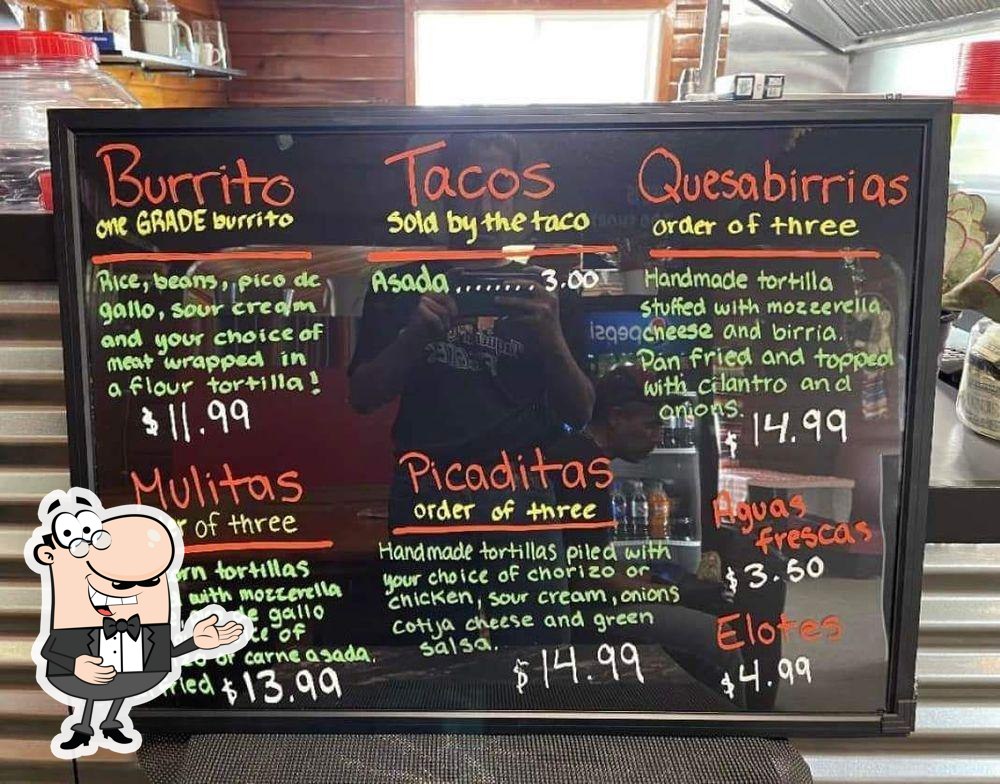 Burrito
one GRADE burrito
Rice, beans, pico de
gallo, sour cream
and your choice of
meat wrapped in
a flour tortilla!
$11.99
Tacos
sold by the taco
Asada........3.00
Quesabirrias
order of three
Handmade tortilla
stuffed with mozzerella
cheese and birria.
Pan fried and topped
with cilantro and
onions.
$14.99
Mulitas
of three
tortillas
with mozzerella
gallo
of
or carne asada.
$13.99
Picaditas
order of three
Handmade tortillas piled with
your choice of chorizo or
chicken, sour cream, onions
Cotija cheese and green
salsa.
$14.99
Aguas
frescas
$3.50
Elotes
$4.99
pepsi